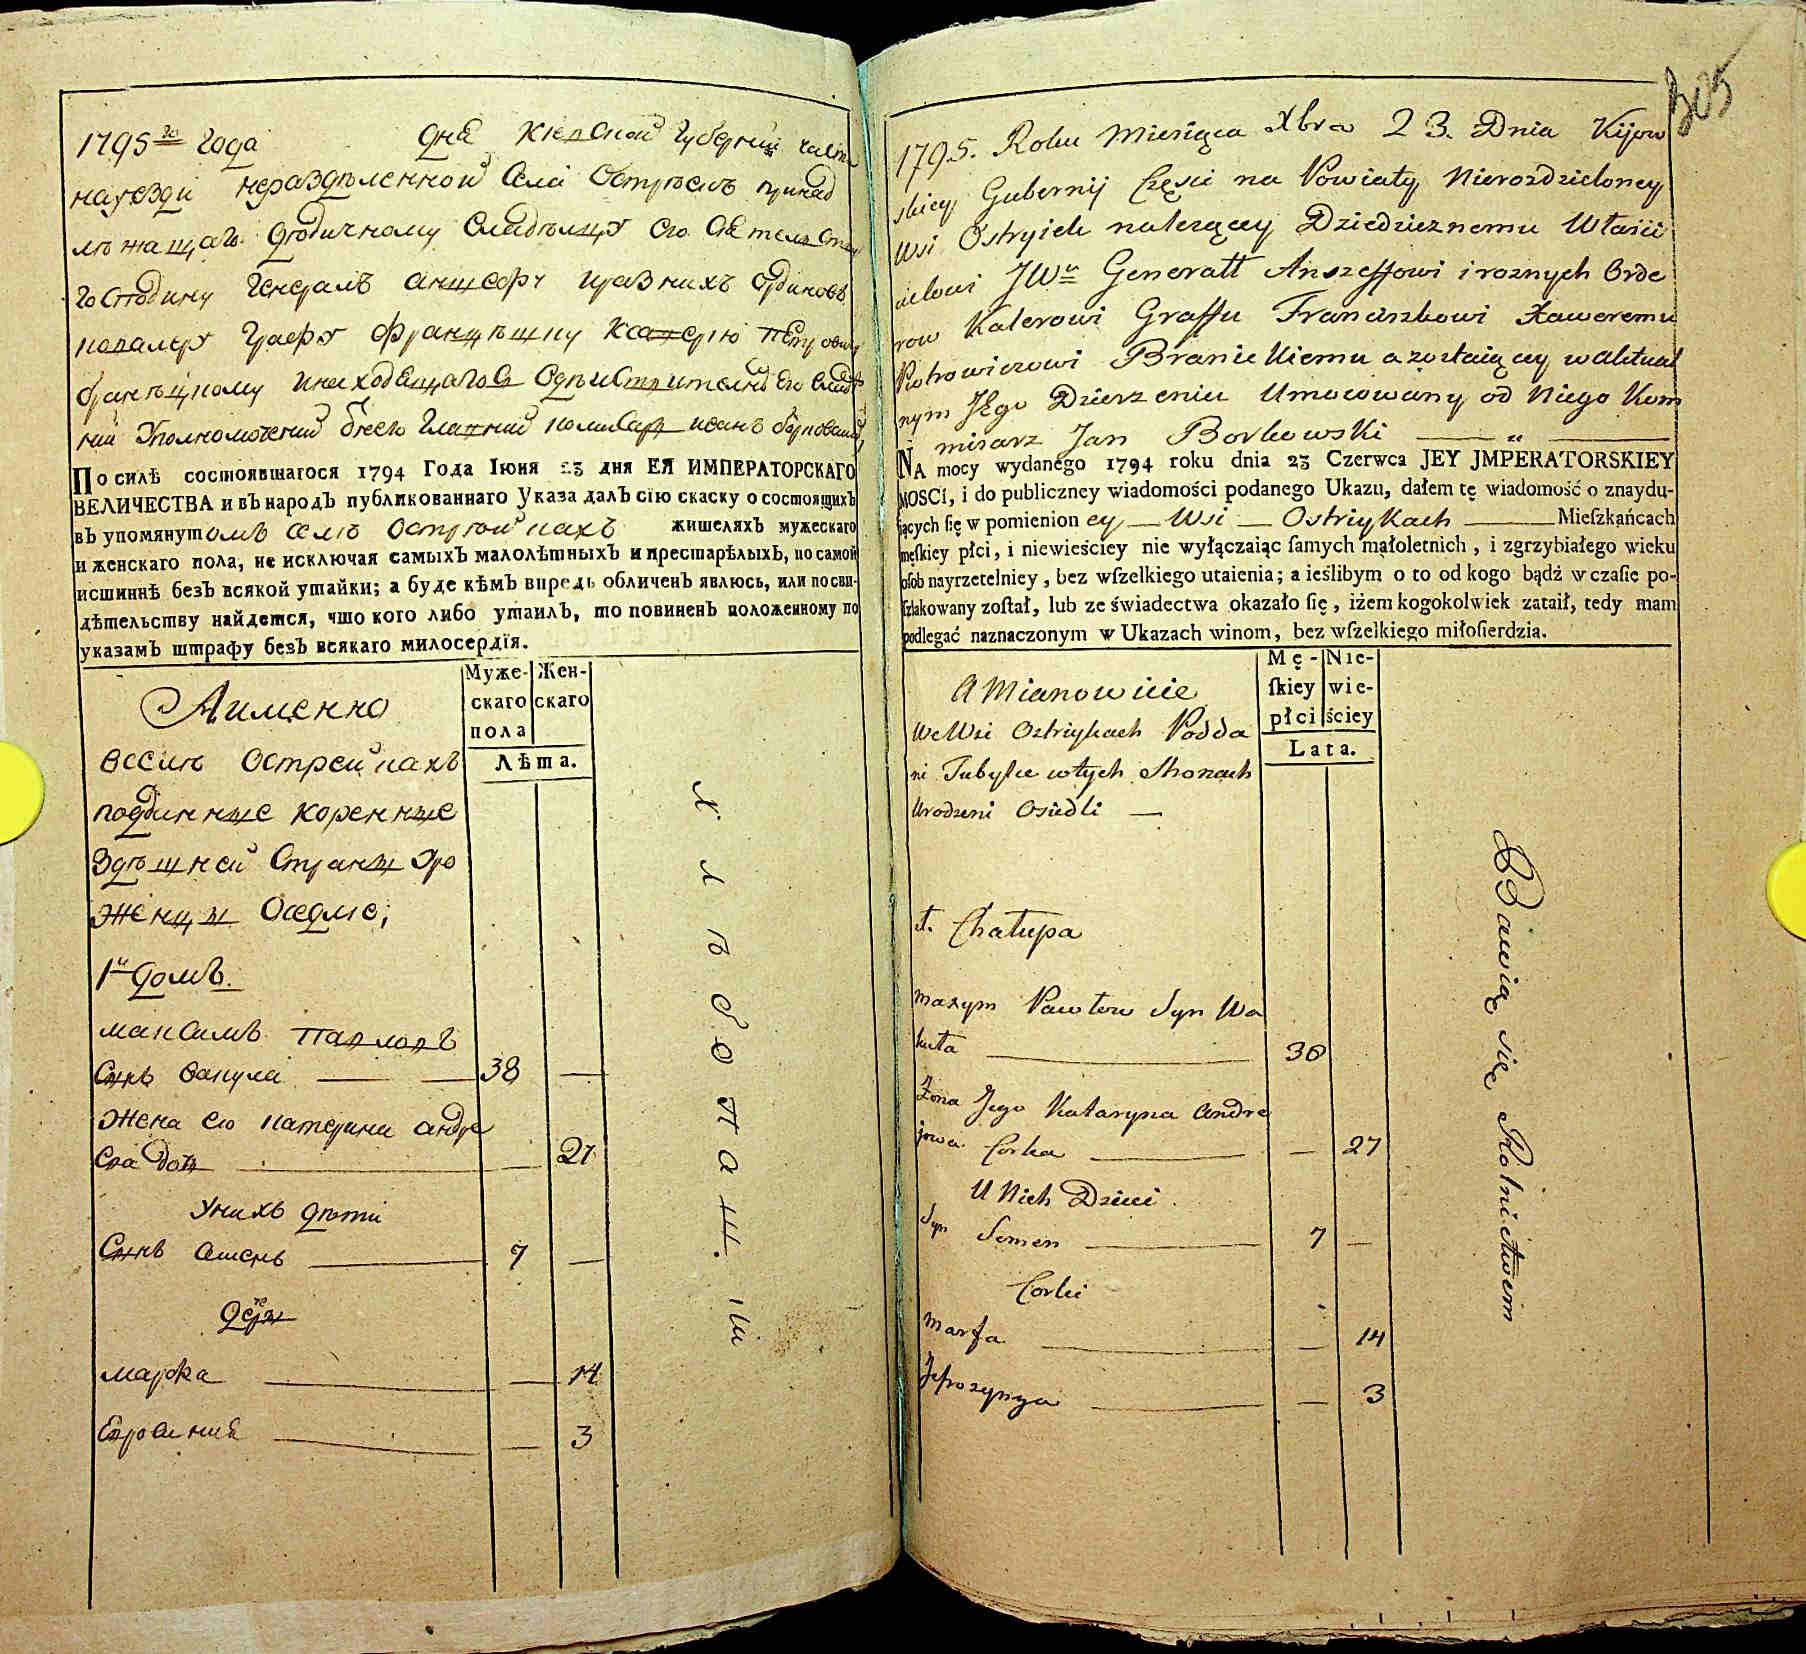 1795го Года дня Киевской Губернии части
на уезди нераздѣленной Села Остріекъ принад
лѣжащаго дѣдичному владѣлцу его
Господину Генералъ аншефу и разнихъ Ординовъ
кавалеру Графу Францѣшку Ксаверію Петрович
браницкому и находящагося в дѣиствителном его владѣ
нии Уполномоченій Главний комисаръ иванъ борковский
По силѣ состоявшагося 1794 Года Іюня 23 дня ЕЯ ИМПЕРАТОРСКАГО
ВЕЛИЧЕСТВА и въ народъ публикованнаго Указа далъ сію скаску о состоящихъ
въ упомянутомъ селѣ Остріойкахъ жителяхъ мужескаго
и женскаго пола, не исключая самыхъ малолѣтныхъ и престарѣлыхъ, по самой
истиннѣ безъ всякой утайки; а буде кѣмъ впредь обличенъ явлюсь, или по сви-
дѣтельству найдется, что кого либо утаилъ, то повиненъ положенному по
указамъ штрафу безъ всякаго милосердія.
Муже-скаго пола
Жен-скаго
Лѣта.
А именно
в селѣ Острейкахъ
подданные коренные
здѣшней Страны Уро
женцы Оседлие;
1й домъ.
максимъ Павловъ
Сынъ вакула — 38 —
жена его катерина андре
ева дочь — 27
У нихъ дѣти
Сынъ семенъ — 7 —
дочери
марфа — 14
Евросиния — 3
хлѣбопашцы
305
1795. Roku Miesiąca Xbra 23. Dnia Kijow
skiey Gubernij Części na Powiaty Nierozdzieloney
Wsi Ostryiek należącey Dziedzicznemu Właści
cielowi JWu Generałł Anszeffowi i roznych Orde
row Kalerowi Graffu Franciszkowi Xaweremu
Piotrowiczowi Branickiemu a zostaiącey w aktual
nym Jego Dzierzeniu Umocowany od Niego Kom
misarz Jan Borkowski — " —
NA mocy wydanego 1794 roku dnia 23 Czerwca JEY JMPERATORSKIEY
MOSCI, i do publiczney wiadomości podanego Ukazu, dałem tę wiadomość o znaydu-
iących ſię w pomienion ey — Wsi — Ostriykach — Mieſzkańcach
męſkiey płci, i niewieściey nie wyłączaiąc ſamych małoletnich, i zgrzybiałego wieku
osob nayrzetelniey, bez wſzelkiego utaienia; a ieślibym o to od kogo bądź w czaſie po-
ſzlakowany zoſtał, lub ze świadectwa okazało ſię, iżem kogokolwiek zataił, tedy mam
podlegać naznaczonym w Ukazach winom, bez wſzelkiego miłoſierdzia.
Mę-ſkiey płci
Nie-wie-ściey
Lata.
A Mianowicie
We Wsi Ostriykach Podda
ni Tubylce w tych Stronach
Urodzeni Osiedli —
1. Chałupa
Maxym Pawłow Syn Wa
kuła — 38
Żona Jego Kataryna Andre
jowa Corka — 27
U Nich Dzieci
Syn Semen — 7 —
Corki
Marfa — 14
Jefrozynya — 3
Bawią się Rolnictwem